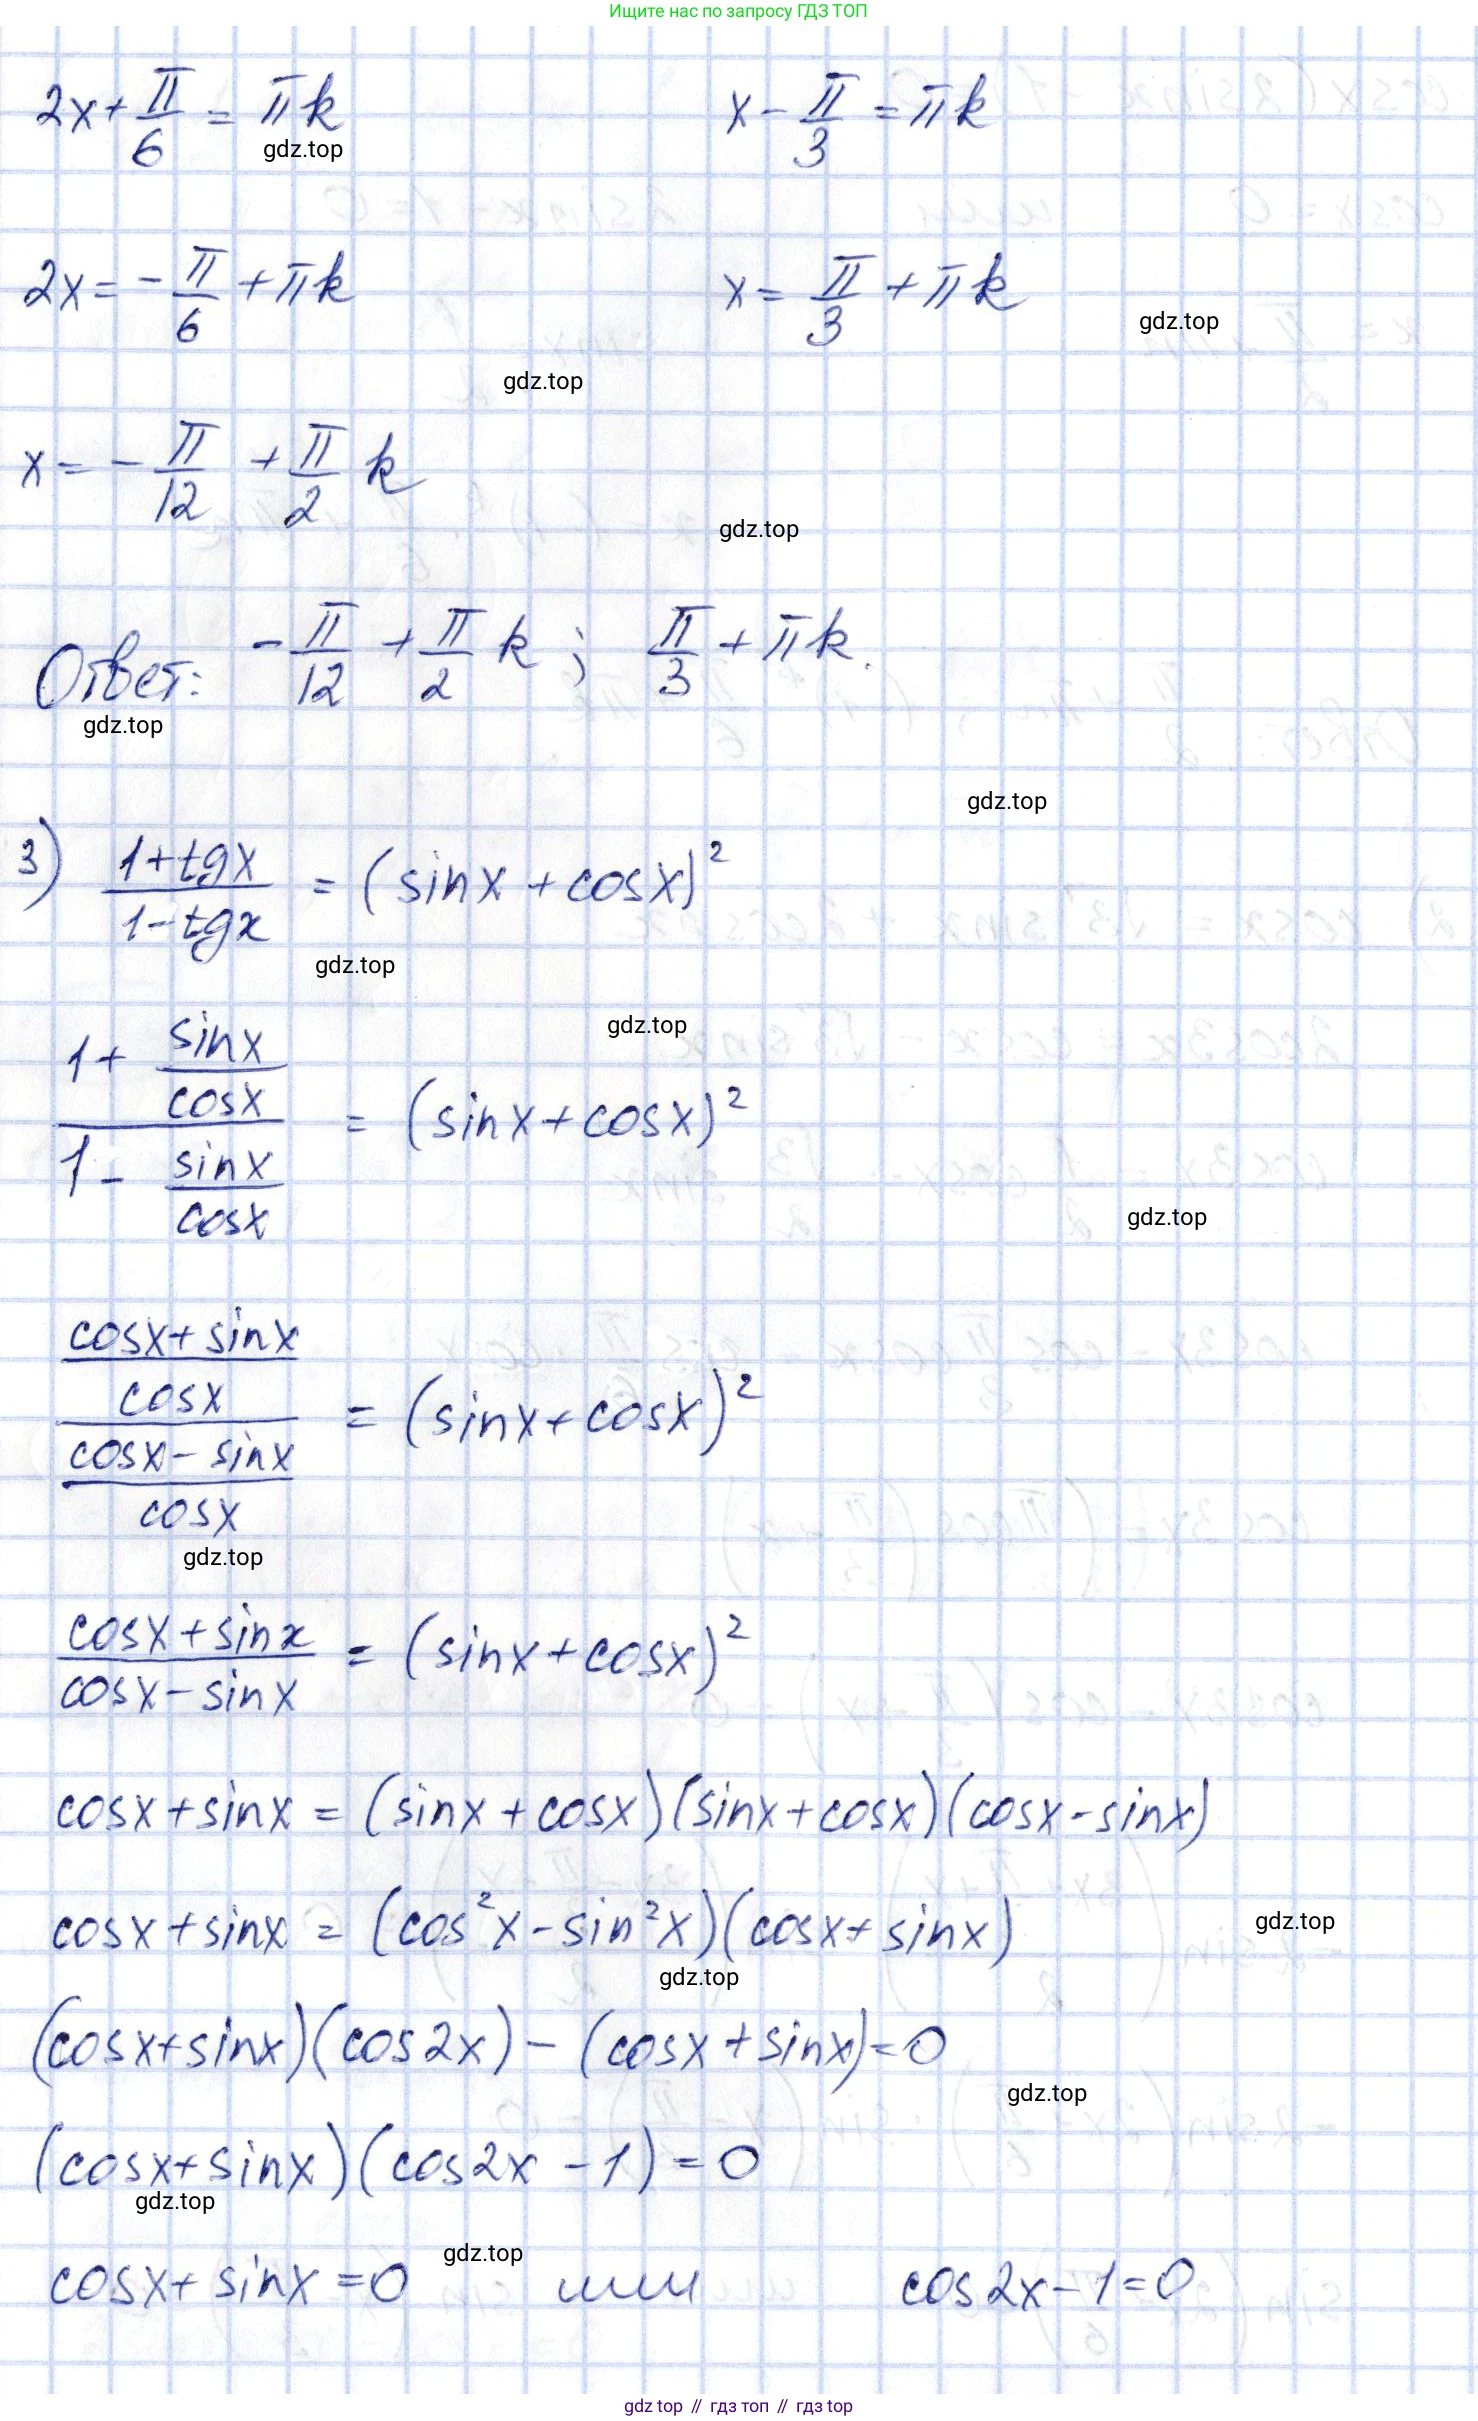 Ищите нас по запросу ГДЗ ТОП
2x + π/6 = πk x - π/3 = πk
gdz.top
2x = -π/6 + πk x = π/3 + πk
gdz.top
gdz.top
x = -π/12 + π/2 k
gdz.top
Ответ: -π/12 + π/2 k; π/3 + πk.
gdz.top
gdz.top
3) (1+tgx)/(1-tgx) = (sinx + cosx)²
gdz.top
gdz.top
(1 + sinx/cosx)/(1 - sinx/cosx) = (sinx + cosx)²
gdz.top
((cosx + sinx)/cosx)/((cosx - sinx)/cosx) = (sinx + cosx)²
gdz.top
(cosx + sinx)/(cosx - sinx) = (sinx + cosx)²
cosx + sinx = (sinx + cosx)(sinx + cosx)(cosx - sinx)
cosx + sinx = (cos²x - sin²x)(cosx + sinx)
gdz.top
gdz.top
(cosx + sinx)(cos2x) - (cosx + sinx) = 0
gdz.top
(cosx + sinx)(cos2x - 1) = 0
gdz.top
gdz.top
cosx + sinx = 0 или cos2x - 1 = 0
gdz.top // гдз топ // гдз top